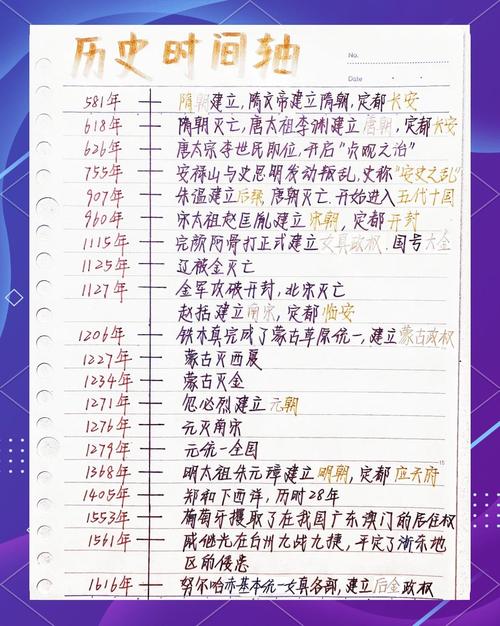 历史时间轴
No.
Date
581年 — 隋朝建立,隋文帝建立隋朝,定都长安
618年 — 隋朝灭亡,唐太祖李渊建立唐朝,定都长安
626年 — 唐太宗李世民即位,开启"贞观之治"
755年 — 安禄山与史思明发动叛乱,史称"安史之乱"
907年 — 朱温建立后梁 唐朝灭亡.开始进入五代十国
960年 — 宋太祖赵匡胤建立 宋朝,定都 开封
1115年 — 完颜阿骨打正式建立女真政权.国号大金
1125年 — 辽被金灭亡
1127年 — 金军攻破开封,北宋灭亡
赵括建立南宋,定都 临安
1206年 — 铁木真完成了蒙古草原统一,建立蒙古政权
1227年 — 蒙古灭西夏
1234年 — 蒙古灭金
1271年 — 忽必烈建立 元朝
1276年 — 元灭南宋
1279年 — 元统一全国
15
1368年 — 明太祖朱元璋建立 明朝,定都 应天府
1405年 — 郑和下西洋,历时28年
1553年 — 葡萄牙攫取了在我国广东澳门的居住权
1561年 — 戚继光在台州九战九捷,平定了浙东地
区的倭患
1616年 — 努尔哈赤基本统一女真各部,建立后金政权